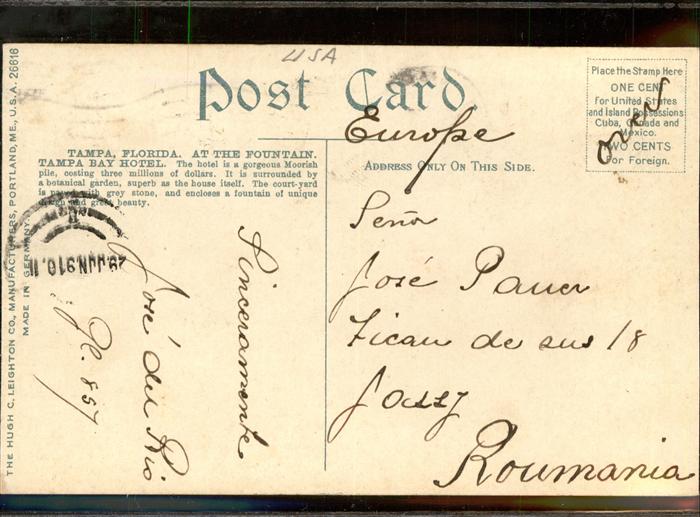 USA
Post Card.
Place the Stamp Here
ONE CENT
For United States
and Island Possessions
Cuba, Canada and
Mexico.
TWO CENTS
For Foreign.
over
TAMPA, FLORIDA. AT THE FOUNTAIN.
TAMPA BAY HOTEL. The hotel is a gorgeous Moorish
pile, costing three millions of dollars. It is surrounded
by a botanical garden, superb as the house itself. The court-yard
is paved with grey stone, and encloses a fountain of unique
design and great beauty.
Europe
ADDRESS ONLY ON THIS SIDE.
Señor
José Pauer
Ticau de sus 18
Jassy
Roumania
Sinceramente
José del Rio
29.JUN.910.11
THE HUGH C. LEIGHTON CO., MANUFACTURERS, PORTLAND, ME., U.S.A. 26616
MADE IN GERMANY.